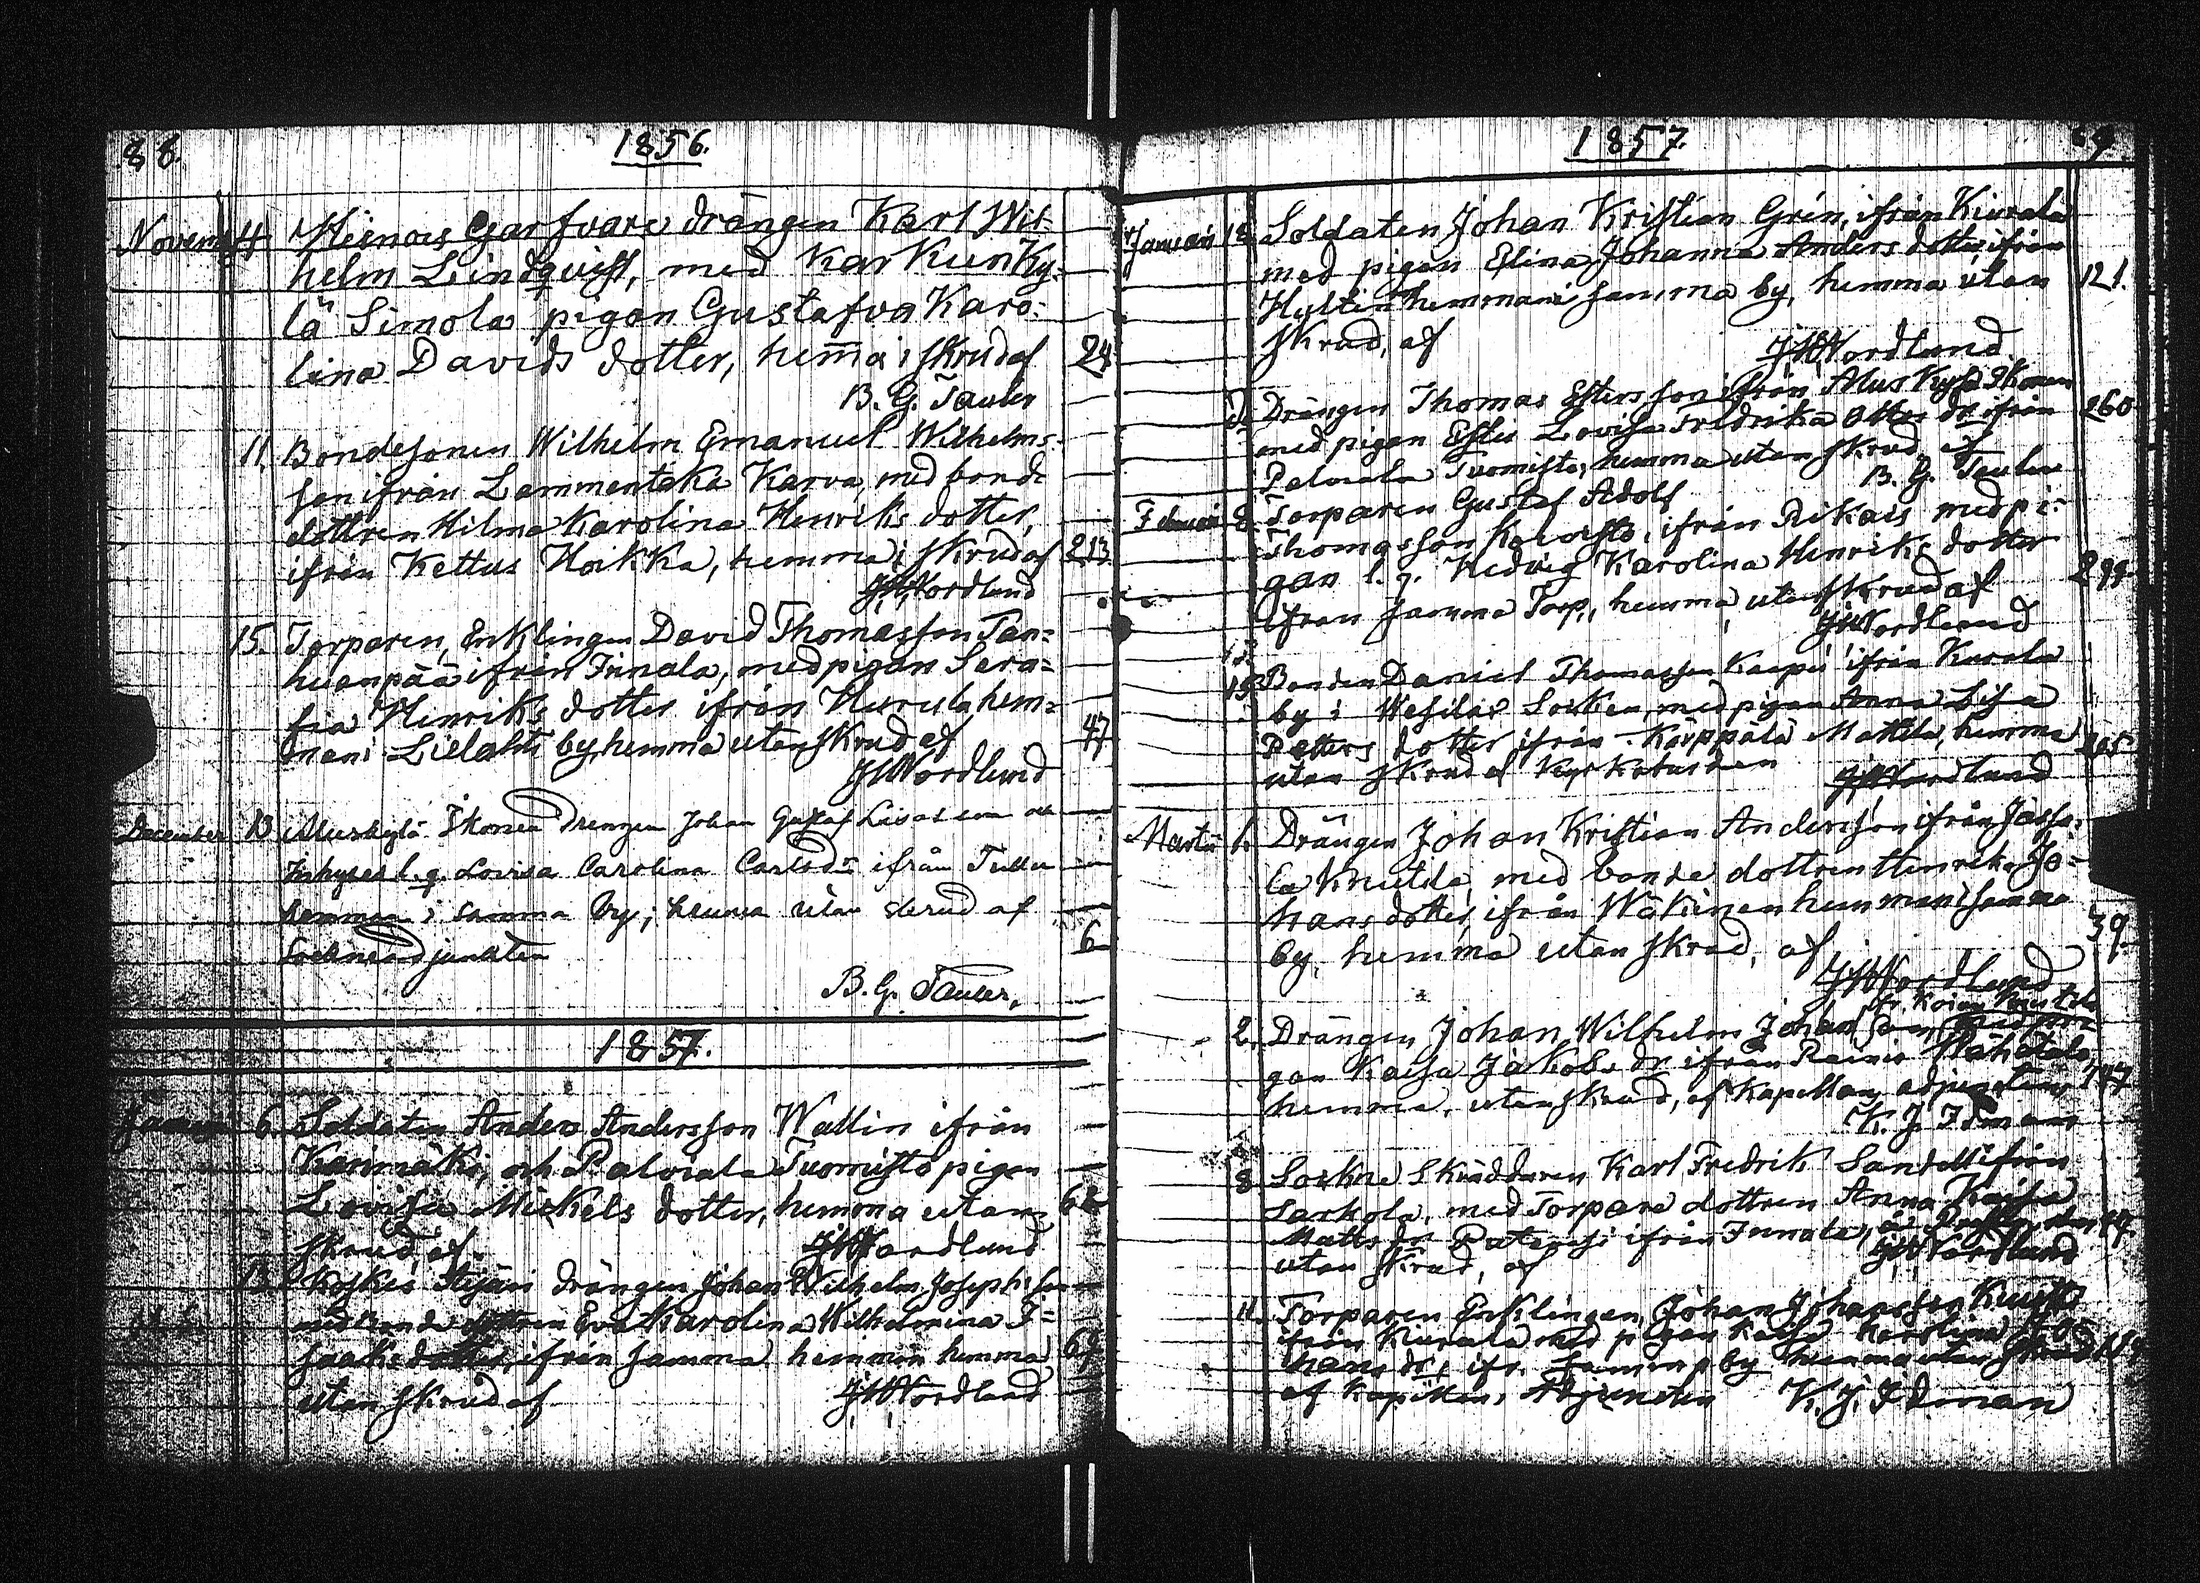 88.
1856.
Novemb 4 Heinois Garfvare drängen Karl Wil-
helm Lindqvist, med Karkun Ky-
lä Simola pigan Gustafva Karo-
lina Davids dotter, hemma i skrud af 24
B. G. Tauler
11. Bondesonen Wilhelm Emanuel Wilhelms-
son ifrån Lammentaka Karva, med bonde
dottren Hilma Karolina Henriks dotter,
ifrån Kettus Hoikka, hemma i skrud af 213
JWNordlund
15. Torparen, Enklingen David Thomasson Tan-
huanpää ifrån Innala, med pigan Sera-
fia Henriks dotter ifrån Hurula hem-
man i Lielahti by, hemma utan skrud af 47
JWNordlund
December 13 Aluskylä Skonen Drengen Johan Gustaf
l. q. Lovisa Carolina Carlsdr ifrån
hemman i samma by; hemma utan skrud af
Sockneadjunkten 6
B. G. Tauler.
1857.
Januari 6. Soldaten Anders Andersson Wallin ifrån
Karimäki, och Palviala Tuomisto pigan
Lovisa Mickels dotter, hemma utan 62
skrud, af JWNordlund
13. Koskis Äijäri drängen Johan Wilhelm Josephsson
med Bonde dottren Eva Karolina Wilhelmina I-
saaks dotter, ifrån samma hemman hemma 69
utan skrud af JWNordlund
1857.
89
Januari 18. Soldaten Johan Kristian Grén, ifrån Kiurala
med pigan Elina Johanna Anders dotter ifrån
hemman i samma by, hemma utan 121.
skrud, af JWNordlund
Drängen Thomas Estersson ifrån Aluskylä Skonen 260
med pigan Lovisa Fredrika dr ifrån
Palviala Tuomisto, hemma utan skrud af
B. G. Tauler
Februari 8. Torparen Gustaf Adolf
Thomasson Koivisto, ifrån Rikais med pi-
gan l. q. Hedvig Karolina Henriks dotter 299
ifrån samma Torp, hemma, utan skrud af
JWNordlund
19. Bonden Daniel Thomasson Kaupi ifrån Kurala
by i Wesilax Socken, med pigan Anna Lisa
Petters dotter ifrån Käppälä Mattila, hemma
utan skrud af Kyrkoherden
JWNordlund
Martii 1. Drängen Johan Kristian Andersson ifrån Jasse-
la Knutila, med bonde dottren Henrika Jo-
hans dotter, ifrån Wäkinen hemman i samma 39.
by, hemma utan skrud, af
JWNordlund
2. Drängen Johan Wilhelm Johansson
gan Kaisa Jakobs dr ifrån Rainio Wähätalo, 147
hemma, utan skrud, af Kapellans adjuncten
K. J. Idman
8. Sockne Skräddaren Karl Fredrik Sandell ifrån
Sarkola, med Torpare dottren Anna Kaisa
Matts dr ifrån Innala,
utan skrud, af JWNordlund
11. Torparen Enklingen, Johan Johansson
ifrån Kurala med pigan Kaisa Karolina Jo-
hans dr, ifr. samma by hemma utan skrud
af Kapellans Adjuncten K. J. Idman